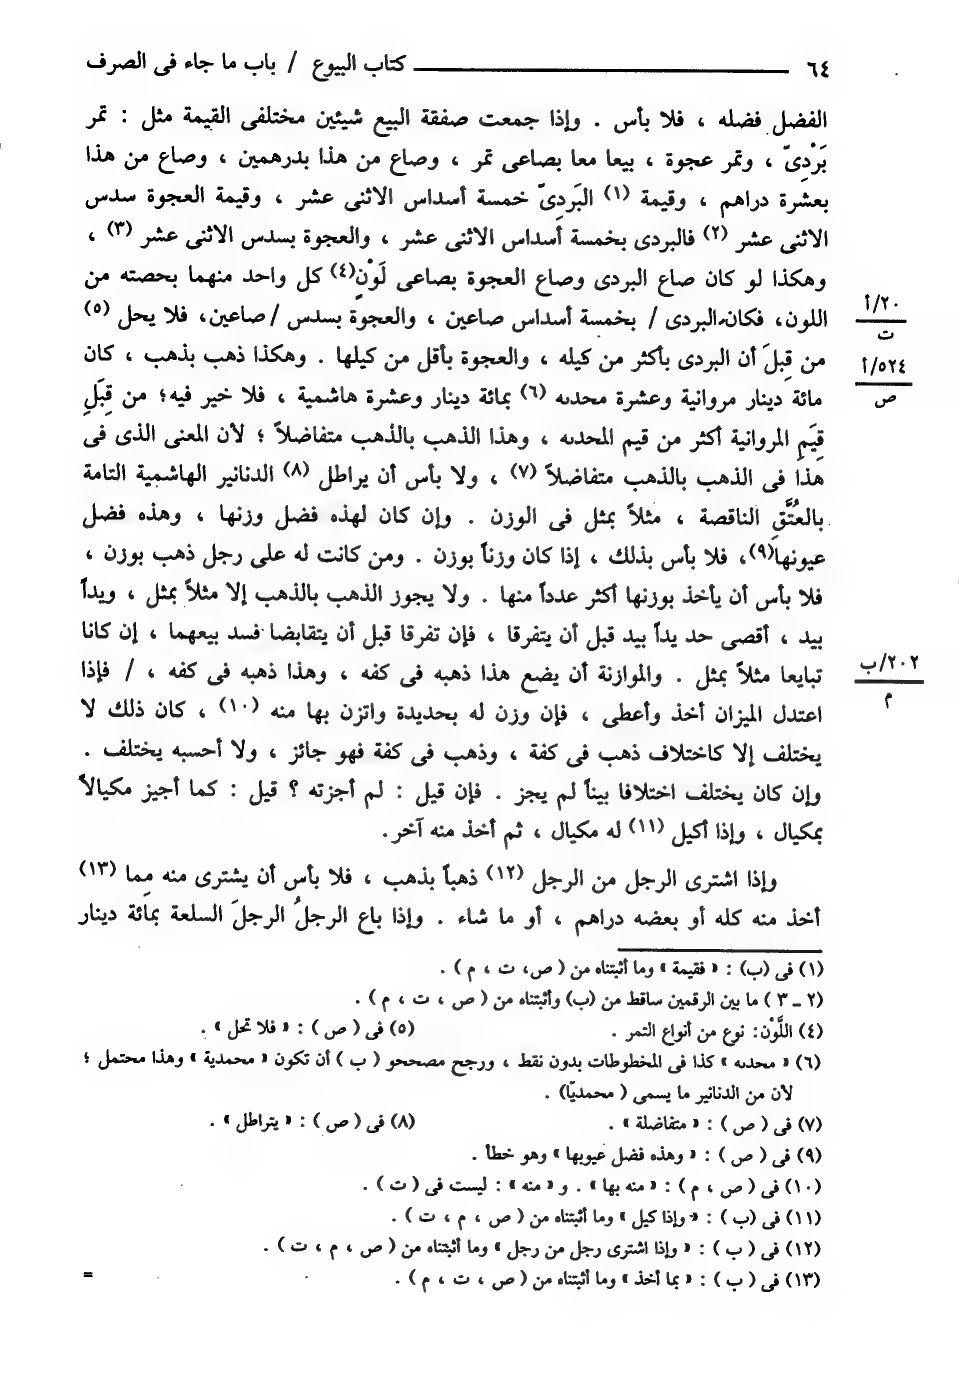 ٦٤ كتاب البيوع / باب ما جاء فى الصرف
الفضل فضله ، فلا بأس . وإذا جمعت صفقة البيع شيئين مختلفى القيمة مثل : تمر
بَرْدِىّ ، وتمر عجوة ، بيعا معا بصاعى تمر ، وصاع من هذا بدرهمين ، وصاع من هذا
بعشرة دراهم ، وقيمة (١) البَردِىّ خمسة أسداس الاثنى عشر ، وقيمة العجوة سدس
الاثنى عشر (٢) فالبردى بخمسة أسداس الاثنى عشر ، والعجوة بسدس الاثنى عشر (٣) ،
وهكذا لو كان صاع البردى وصاع العجوة بصاعى لَوْنٍ(٤) كل واحد منهما بحصته من
اللون، فكان البردى / بخمسة أسداس صاعين ، والعجوة بسدس /صاعين، فلا يحل (٥)
٢٠/أ
ت
من قِبلَ أن البردى بأكثر من كيله ، والعجوة بأقل من كيلها . وهكذا ذهب بذهب ، كان
٥٢٤/أ
ص
مائة دينار مروانية وعشرة محدىه (٦) بمائة دينار وعشرة هاشمية ، فلا خير فيه؛ من قِبَلِ
قِيَمِ المروانية أكثر من قيم المحدىه ، وهذا الذهب بالذهب متفاضلاً ؛ لأن المعنى الذى فى
هذا فى الذهب بالذهب متفاضلاً (٧) ، ولا بأس أن يراطل (٨) الدنانير الهاشمية التامة
بالعُتَّقِ الناقصة ، مثلاً بمثل فى الوزن . وإن كان لهذه فضل وزنها ، وهذه فضل
عيونها(٩)، فلا بأس بذلك ، إذا كان وزناً بوزن . ومن كانت له على رجل ذهب بوزن ،
فلا بأس أن يأخذ بوزنها أكثر عدداً منها . ولا يجوز الذهب بالذهب إلا مثلاً بمثل ، ويداً
بيد ، أقصى حد يداً بيد قبل أن يتفرقا ، فإن تفرقا قبل أن يتقابضا فسد بيعهما ، إن كانا
تبايعا مثلاً بمثل . والموازنة أن يضع هذا ذهبه فى كفه ، وهذا ذهبه فى كفه ، / فإذا
٢٠٢/ب
م
اعتدل الميزان أخذ وأعطى ، فإن وزن له بحديدة واتزن بها منه (١٠) ، كان ذلك لا
يختلف إلا كاختلاف ذهب فى كفة ، وذهب فى كفة فهو جائز ، ولا أحسبه يختلف .
وإن كان يختلف اختلافا بيناً لم يجز . فإن قيل : لم أجزته ؟ قيل : كما أجيز مكيالاً
بمكيال ، وإذا أكيل (١١) له مكيال ، ثم أخذ منه آخر.
وإذا اشترى الرجل من الرجل (١٢) ذهباً بذهب ، فلا بأس أن يشترى منه مِما (١٣)
أخذ منه كله أو بعضه دراهم ، أو ما شاء . وإذا باع الرجلُ الرجلَ السلعة بمائة دينار
(١) فى (ب) : « فقيمة » وما أثبتناه من ( ص، ت ، م ) .
(٢ ـ ٣ ) ما بين الرقمين ساقط من (ب) وأثبتناه من ( ص ، ت ، م ) .
(٤) اللَّوْن: نوع من أنواع التمر . (٥) فى ( ص ) : « فلا تحل » .
(٦) « محدىه » كذا فى المخطوطات بدون نقط ، ورجح مصححو ( ب ) أن تكون « محمدية » وهذا محتمل ؛
لأن من الدنانير ما يسمى ( محمديّا) .
(٧) فى ( ص ) : « متفاضلة » . (٨) فى ( ص ) : « يتراطل » .
(٩) فى ( ص ) : « وهذه فضل عيوبها » وهو خطأ .
(١٠) فى ( ص ، م ) : « منه بها » . و « منه » : ليست فى ( ت ) .
(١١) فى (ب ) : « وإذا كيل » وما أثبتناه من ( ص ، م ، ت ) .
(١٢) فى ( ب ) : « وإذا اشترى رجل من رجل » وما أثبتناه من ( ص ، م ، ت ) .
(١٣) فى ( ب ) : « بما أخذ » وما أثبتناه من ( ص ، ت ، م ) . =